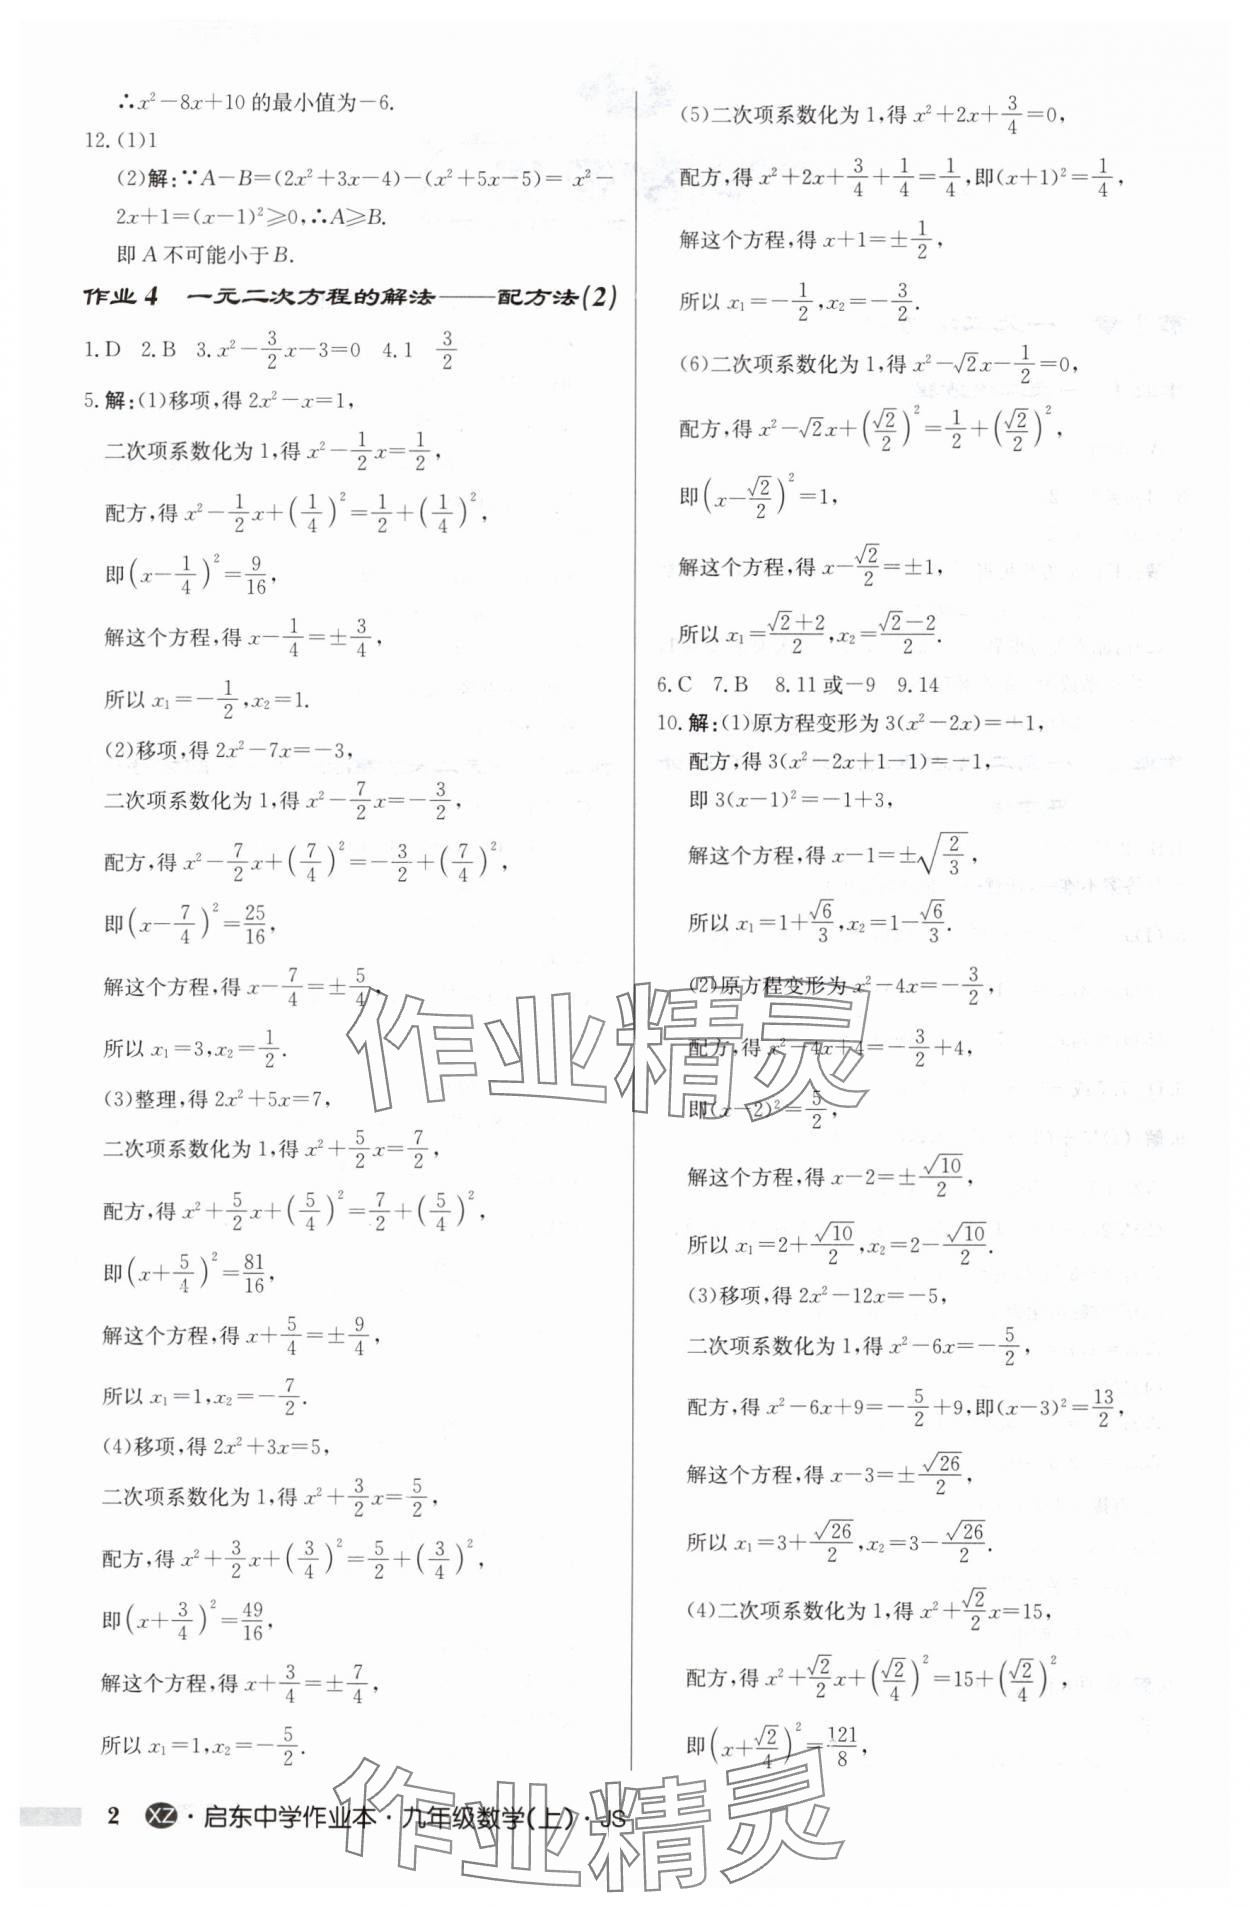 ∴x²−8x+10的最小值为−6.
12.(1)1
(2)解:∵A−B=(2x²+3x−4)−(x²+5x−5)= x²−
2x+1=(x−1)²⩾0,∴A⩾B.
即 A 不可能小于 B.
作业 4 一元二次方程的解法——配方法(2)
1.D 2.B 3.x²−3/2x−3=0 4.1 3/2
5.解:(1)移项,得 2x²−x=1,
二次项系数化为1,得 x²−1/2x=1/2,
配方,得 x²−1/2x+(1/4)²=1/2+(1/4)²,
即(x−1/4)²=9/16,
解这个方程,得 x−1/4=±3/4,
所以 x₁=−1/2,x₂=1.
(2)移项,得 2x²−7x=−3,
二次项系数化为1,得 x²−7/2x=−3/2,
配方,得 x²−7/2x+(7/4)²=−3/2+(7/4)²,
即(x−7/4)²=25/16,
解这个方程,得 x−7/4=±5/4,
所以 x₁=3,x₂=1/2.
(3)整理,得 2x²+5x=7,
二次项系数化为1,得 x²+5/2x=7/2,
配方,得 x²+5/2x+(5/4)²=7/2+(5/4)²,
即(x+5/4)²=81/16,
解这个方程,得 x+5/4=±9/4,
所以 x₁=1,x₂=−7/2.
(4)移项,得 2x²+3x=5,
二次项系数化为1,得 x²+3/2x=5/2,
配方,得 x²+3/2x+(3/4)²=5/2+(3/4)²,
即(x+3/4)²=49/16,
解这个方程,得 x+3/4=±7/4,
所以 x₁=1,x₂=−5/2.
(5)二次项系数化为1,得 x²+2x+3/4=0,
配方,得 x²+2x+3/4+1/4=1/4,即(x+1)²=1/4,
解这个方程,得 x+1=±1/2,
所以 x₁=−1/2,x₂=−3/2.
(6)二次项系数化为1,得 x²−√2x−1/2=0,
配方,得 x²−√2x+(√2/2)²=1/2+(√2/2)²,
即(x−√2/2)²=1,
解这个方程,得 x−√2/2=±1,
所以 x₁=(√2+2)/2,x₂=(√2−2)/2.
6.C 7.B 8.11或−9 9.14
10.解:(1)原方程变形为 3(x²−2x)=−1,
配方,得 3(x²−2x+1−1)=−1,
即 3(x−1)²=−1+3,
解这个方程,得 x−1=±√(2/3),
所以 x₁=1+√6/3,x₂=1−√6/3.
(2)原方程变形为 x²−4x=−3/2,
配方,得 x²−4x+4=−3/2+4,
即(x−2)²=5/2,
解这个方程,得 x−2=±√10/2,
所以 x₁=2+√10/2,x₂=2−√10/2.
(3)移项,得 2x²−12x=−5,
二次项系数化为1,得 x²−6x=−5/2,
配方,得 x²−6x+9=−5/2+9,即(x−3)²=13/2,
解这个方程,得 x−3=±√26/2,
所以 x₁=3+√26/2,x₂=3−√26/2.
(4)二次项系数化为1,得 x²+√2/2x=15,
配方,得 x²+√2/2x+(√2/4)²=15+(√2/4)²,
即(x+√2/4)²=121/8,
作业精灵
作业精灵
2 XZ·启东中学作业本·九年级数学(上)·JS